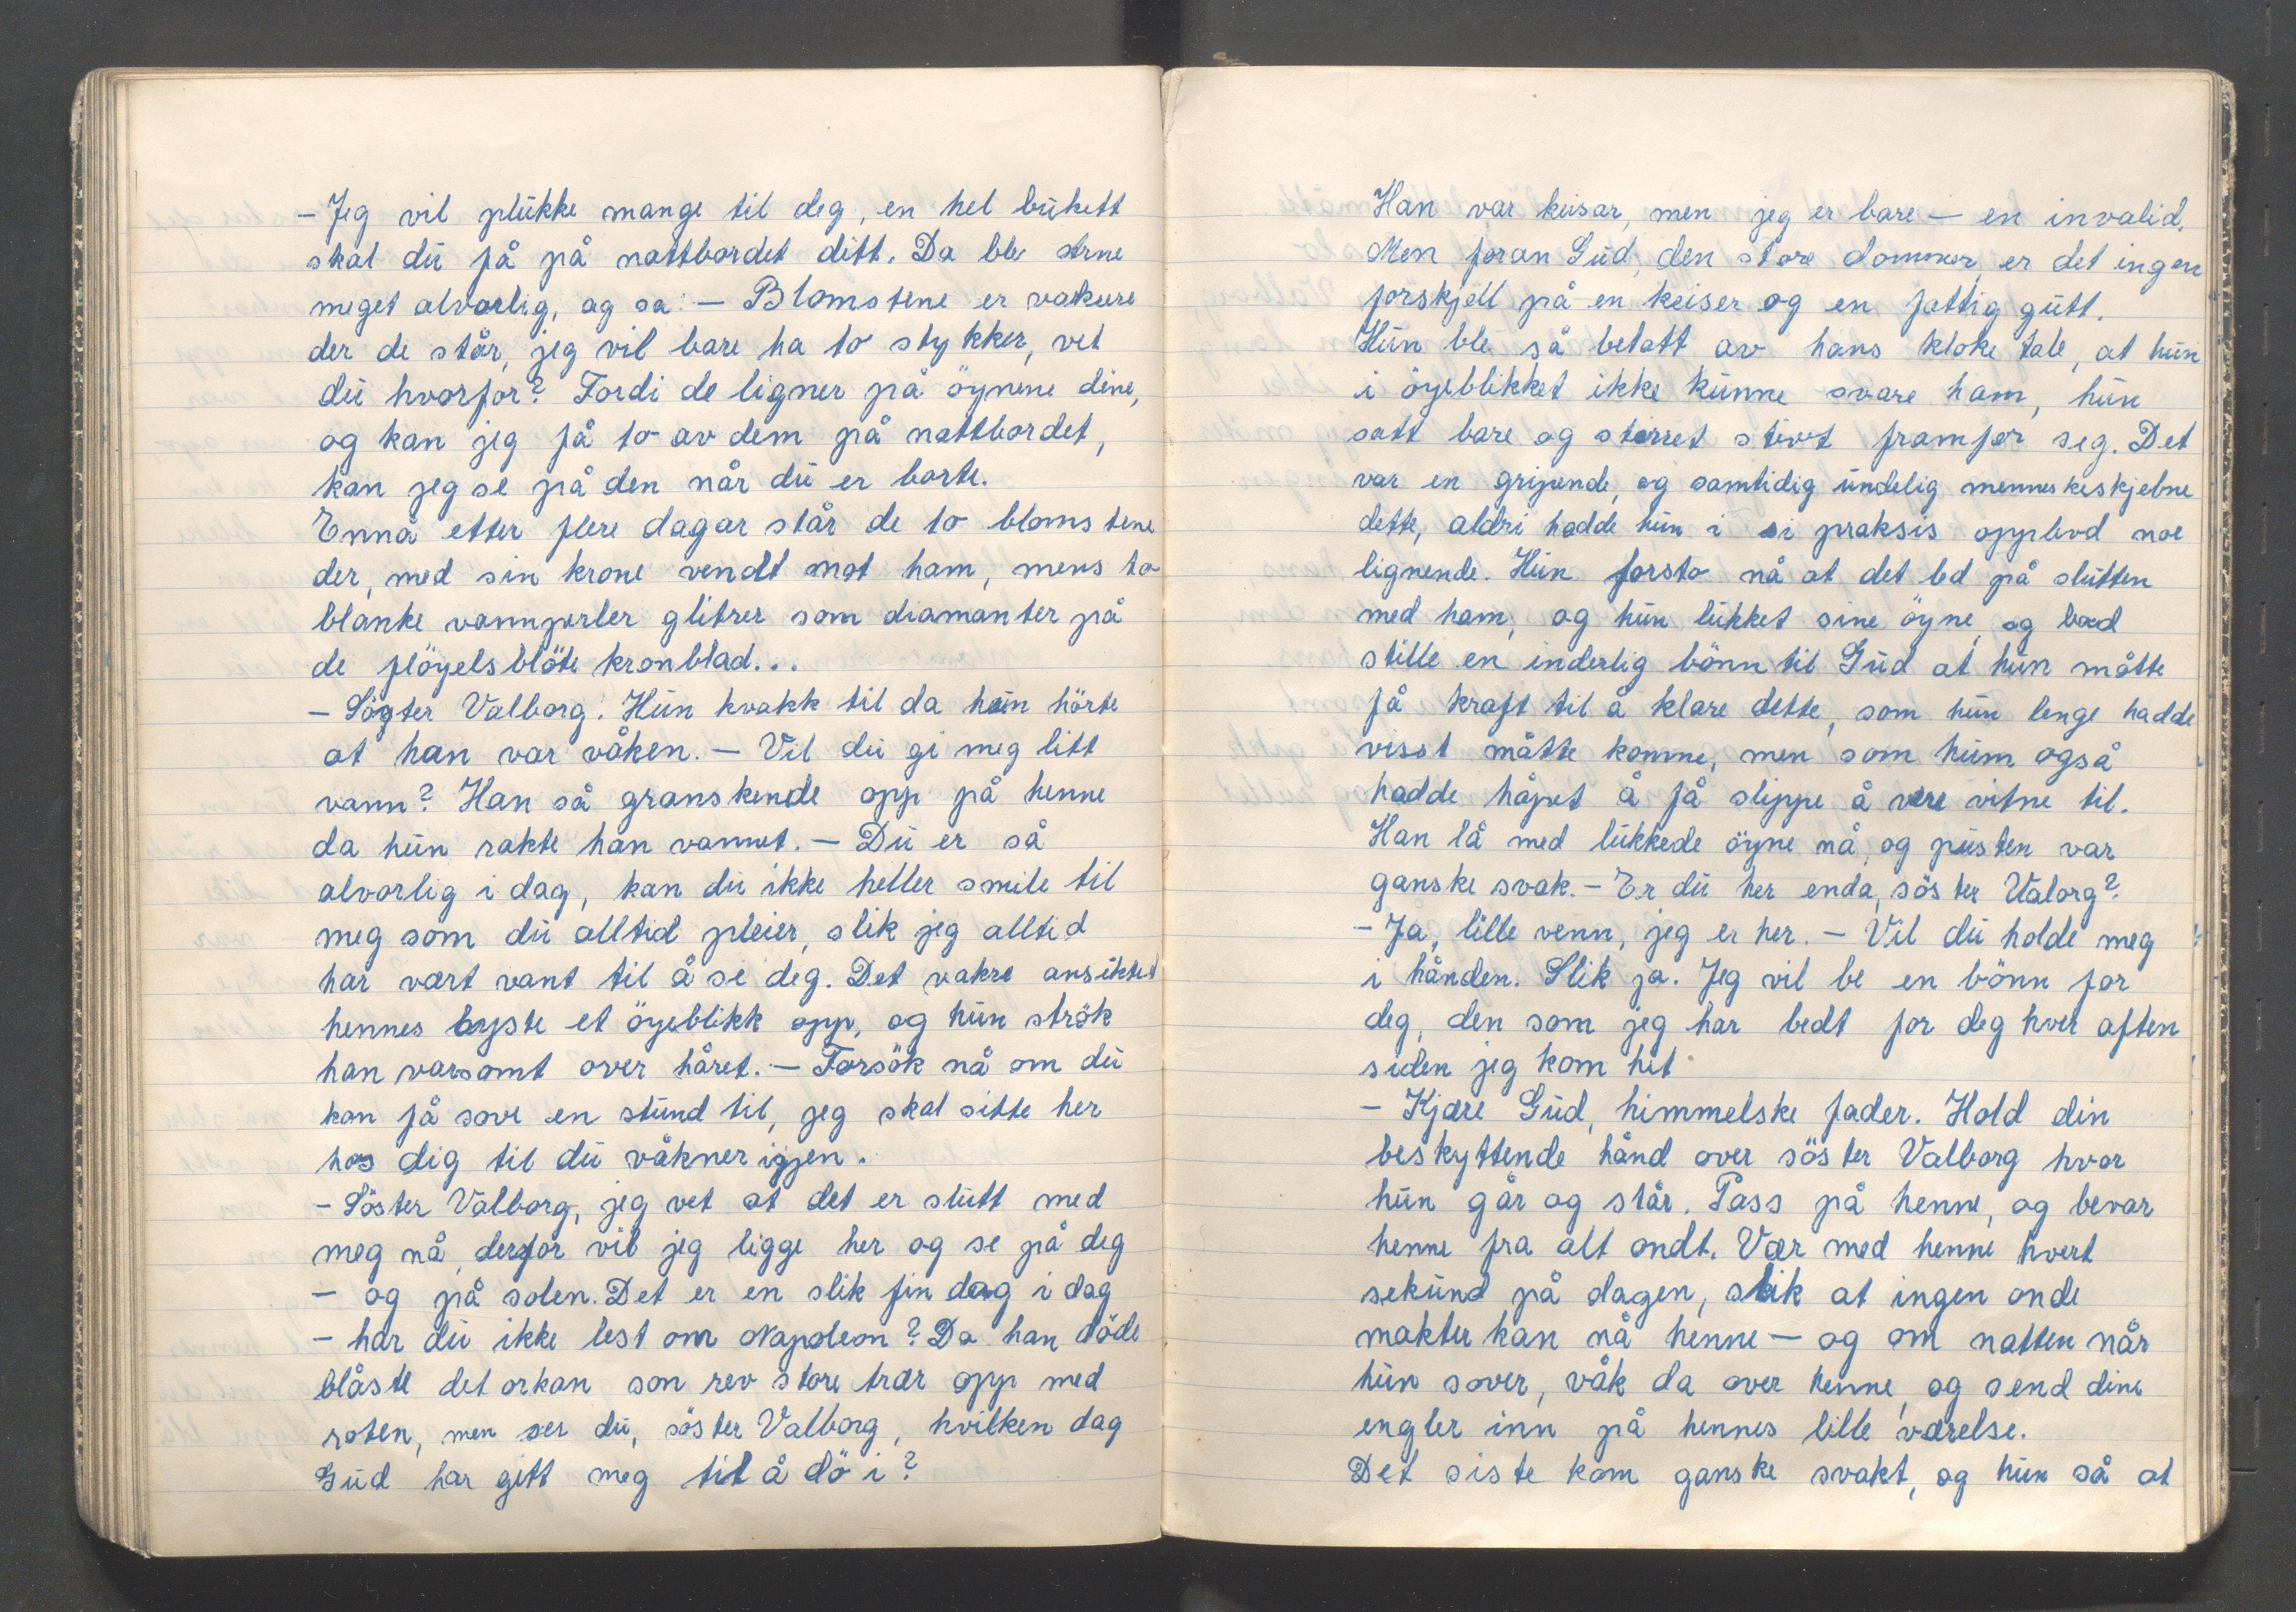 - Jeg vil plukke mange til deg, en hel bukett
skal du få på nattbordet ditt. Da ble Arne
meget alvorlig, og sa: - Blomstene er vakere
der de står, jeg vil bare ha to stykker, vet
du hvorfor? Fordi de ligner på öynene dine,
og kan jeg få to av dem på nattbordet,
kan jeg se på den når du er borte.
Ennå etter flere dagar står de to blomstene
der, med sin krone vendt mot ham, mens to
blanke vannperler glitrer som diamanter på
de flöyelsblöte kronblad...
- Söster Valborg. Hun kvakk til da hun hörte
at han var våken. - Vil du gi meg litt
vann? Han så granskende opp på henne
da hun rakte han vannet. - Du er så
alvorlig i dag, kan du ikke heller smile til
meg som du alltid pleier, slik jeg alltid
har vært vant til å se deg. Det vakre ansiktet
hennes lyste et öyeblikk opp, og hun strök
han varsomt over håret. - Forsök nå om du
kan få sove en stund til, jeg skal sitte her
hos dig til du våkner igjen.
- Söster Valborg, jeg vet at det er slutt med
meg nå, derfor vil jeg ligge her og se på deg
- og på solen. Det er en slik fin dag i dag
- har du ikke lest om Napoleon? Da han döde
blåste det orkan son rev store trær opp med
roten, men ser du, söster Valborg, hvilken dag
Gud har gitt meg til å dö i?
Han var keisar, men jeg er bare - en invalid.
Men foran Gud, den store dommer, er det ingen
forskjell på en keiser og en fattig gutt.
Hun ble så betatt av hans kloke tale, at hun
i öyeblikket ikke kunne svare ham, hun
satt bare og stirret stivt framfor seg. Det
var en gripende, og samtidig undelig menneskeskjebne
dette, aldri hadde hun i si praksis opplevd noe
lignende. Hun forsto nå at det led på slutten
med ham, og hun lukket sine öyne, og bad
stille en inderlig bönn til Gud at hun måtte
få kraft til å klare dette, som hun lenge hadde
visst måtte komme, men som hum også
hadde håpet å få slippe å vere vitne til.
Han lå med lukkede öyne nå, og pusten var
ganske svak. - Er du her enda, söster Valorg?
- Ja, lille venn, jeg er her. - Vil du holde meg
i hånden. Slik ja. Jeg vil be en bönn for
deg, den som jeg har bedt for deg hver aften
siden jeg kom hit
- Kjære Gud, himmelske fader. Hold din
beskyttende hånd over söster Valborg hvor
hun går og står. Pass på henne, og bevar
henne fra alt ondt. Vær med henne hvert
sekund på dagen, slik at ingen onde
makter kan nå henne - og om natten når
hun sover, våk da over henne, og send dine
engler inn på hennes lille værelse.
Det siste kom ganske svakt, og hun så at